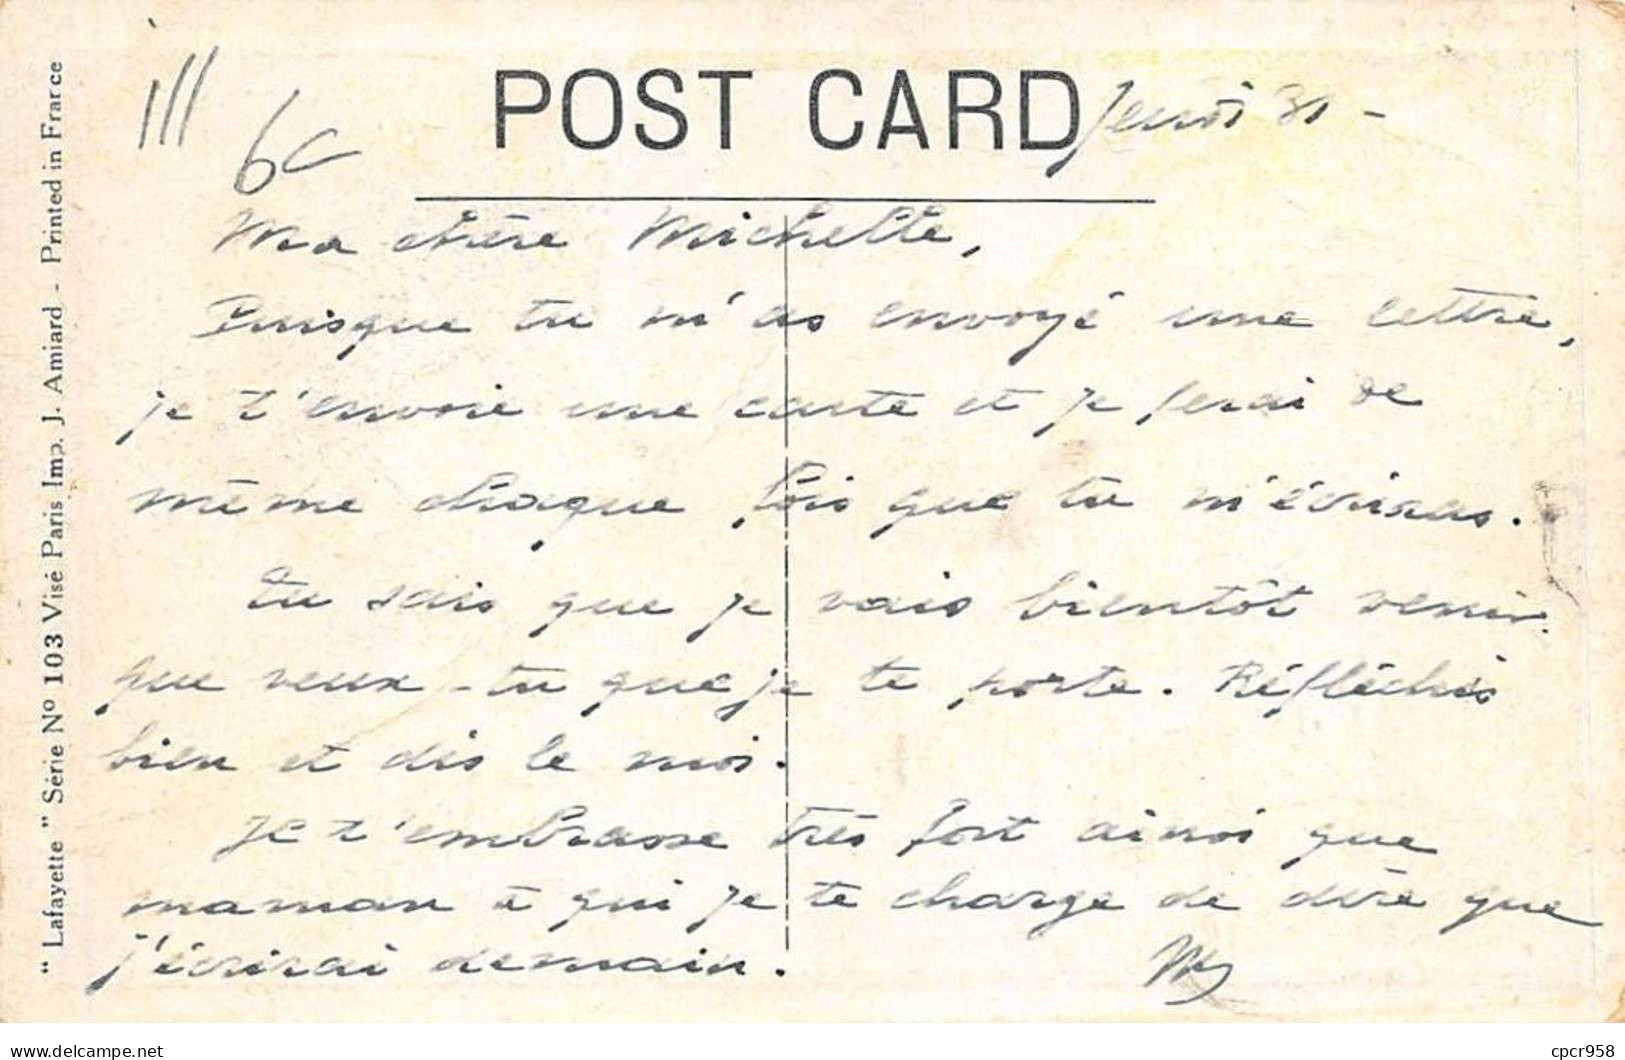 POST CARD
Jeudi 31 -
111
6c
Ma chère Michelle,
Puisque tu m'as envoyé une lettre,
je t'envoie une carte et je ferai de
même chaque fois que tu m'écriras.
Tu sais que je vais bientôt venir.
que veux-tu que je te porte. Réfléchis
bien et dis le moi.
Je t'embrasse très fort ainsi que
maman à qui je te charge de dire que
j'écrirai demain.
" Lafayette " Série Nº 103 Visé Paris Imp. J. Amiard - Printed in France
delcampe.net
cpcr958